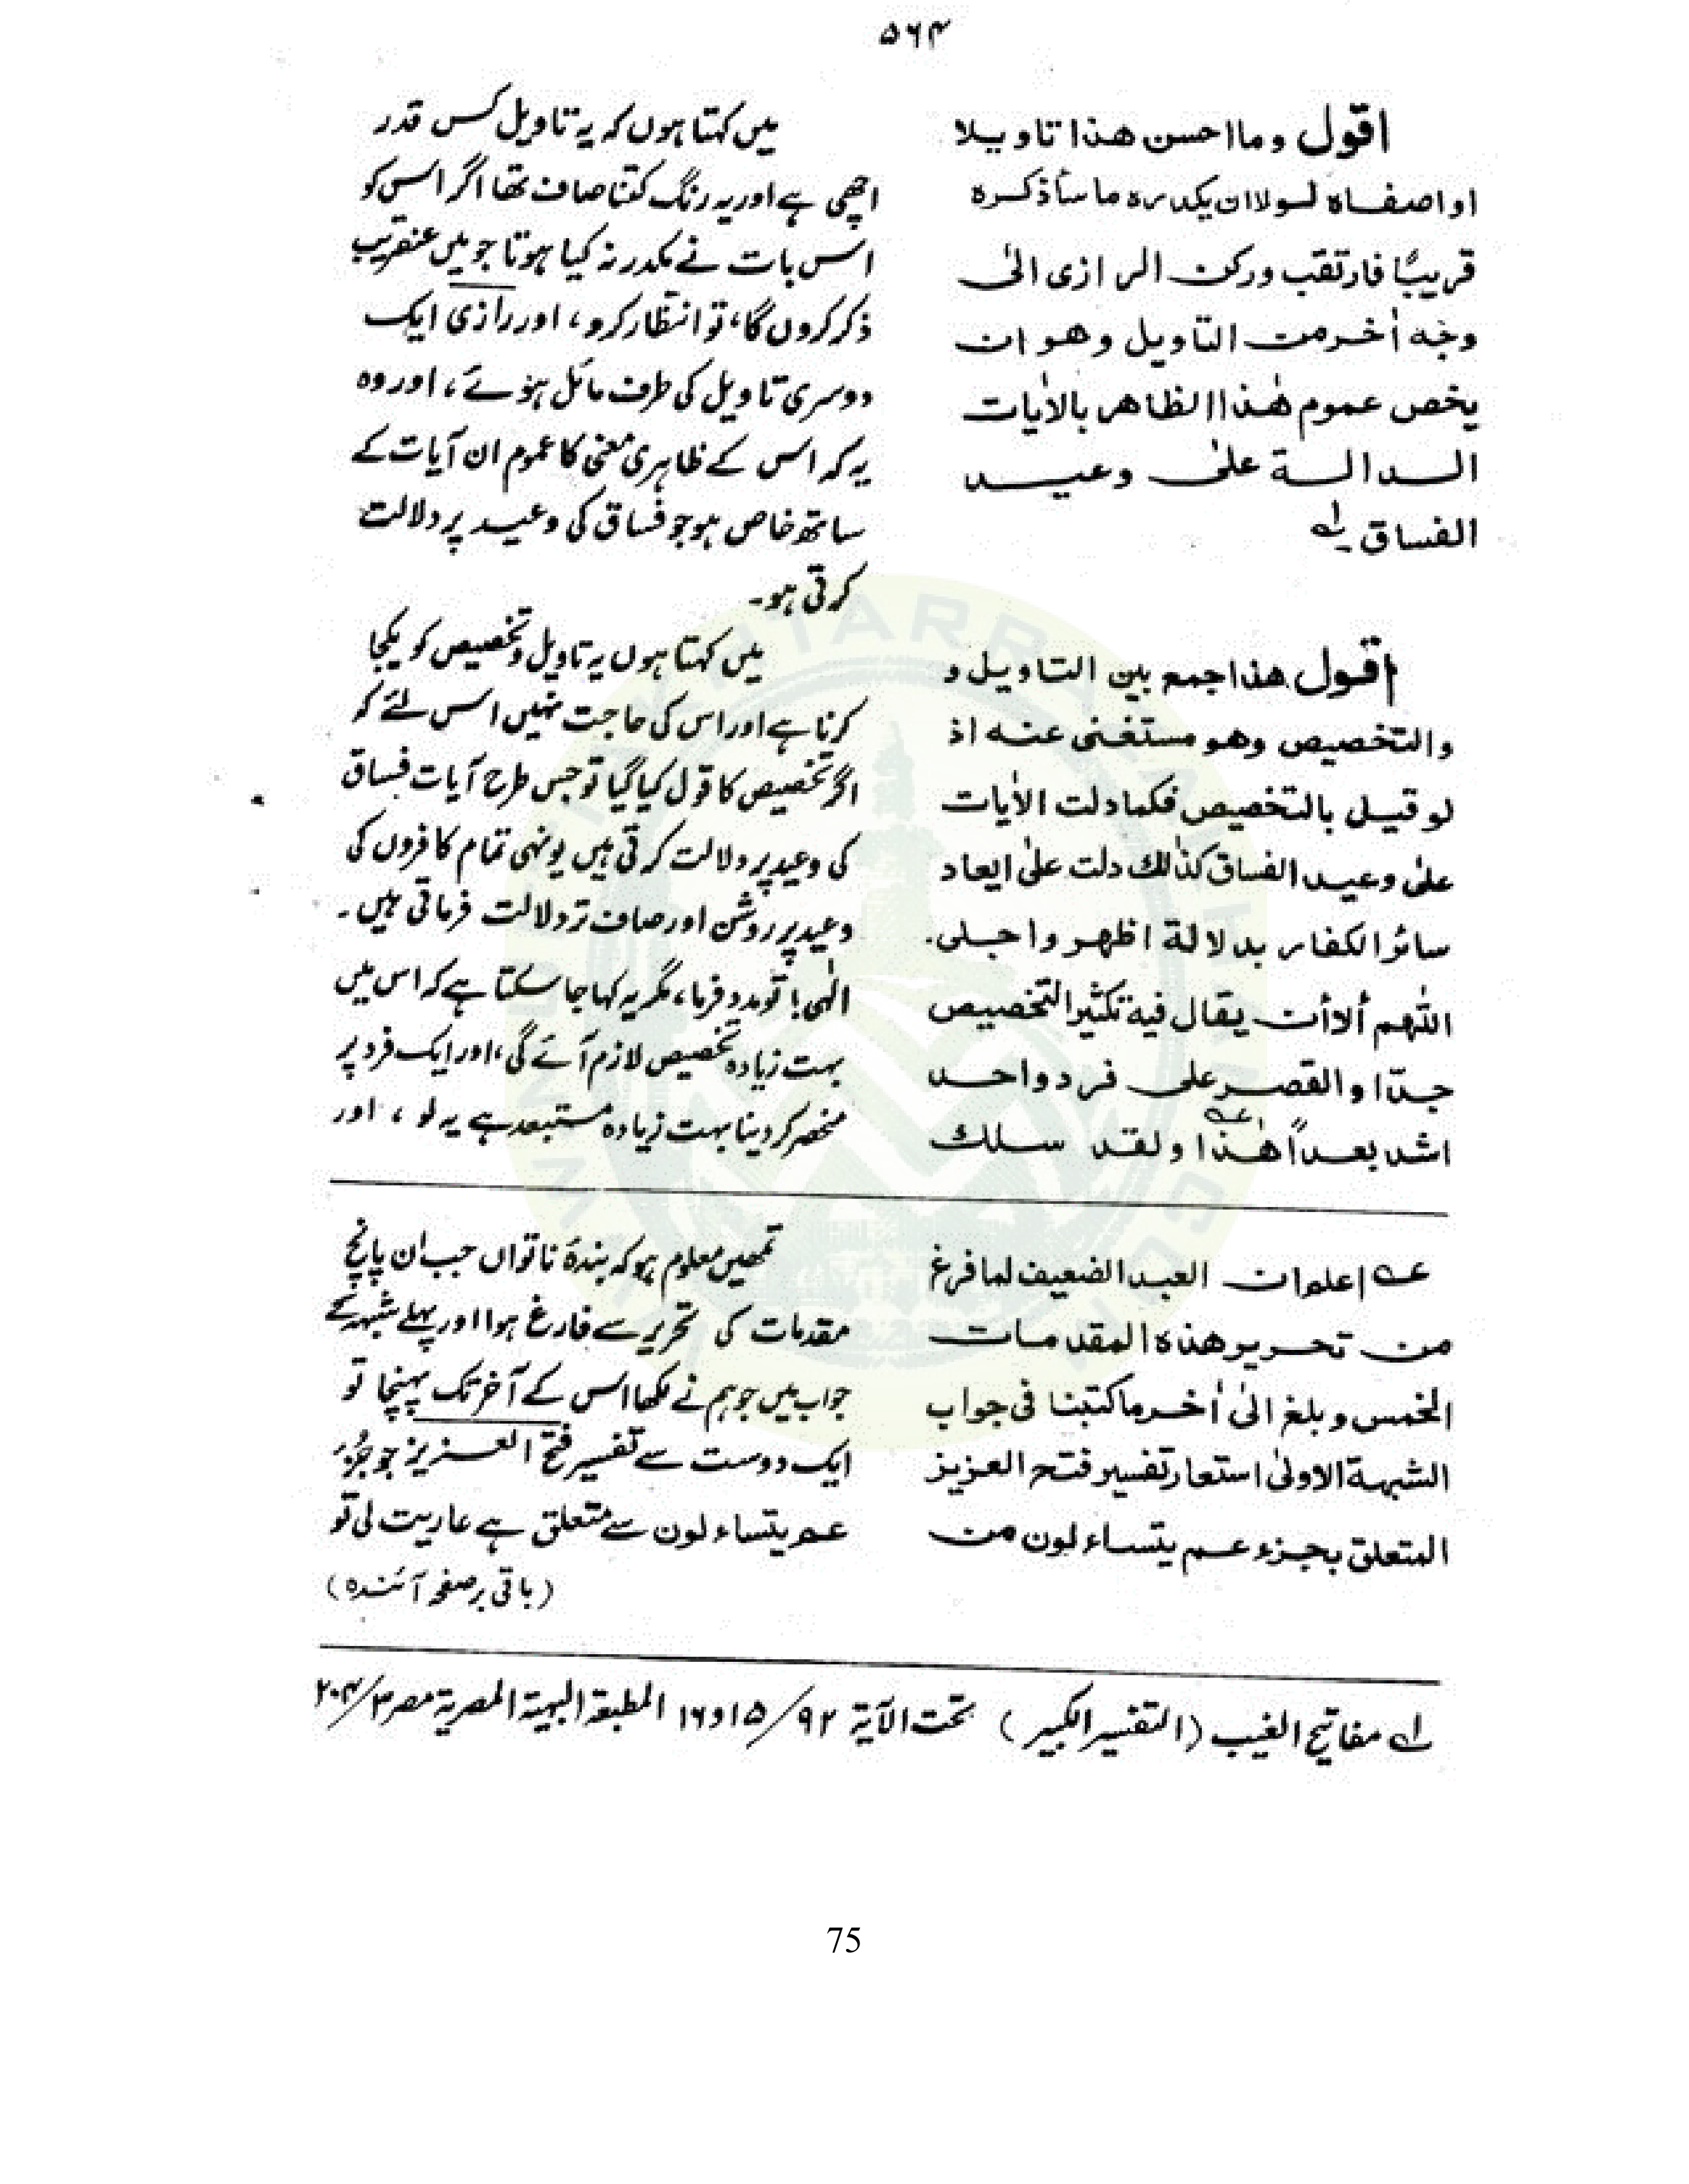 ۵۶۴
اقول وما احسن هذا تاويلا
او اصفاه لولا ان يكدره ما سأذكره
قريبًا فارتقب وركن الرازى الىٰ
وجه اٰخر من التاويل وهو ان
يخص عموم هٰذا الظاهر بالاٰيات
الدالة علىٰ وعيد
الفساق لے
میں کہتا ہوں کہ یہ تاویل کس قدر
اچھی ہے اور یہ رنگ کتنا صاف تھا اگر اس کو
اس بات نے مکدر نہ کیا ہوتا جو میں عنقریب
ذکر کروں گا، تو انتظار کرو، اور رازی ایک
دوسری تاویل کی طرف مائل ہوئے، اور وہ
یہ کہ اس کے ظاہری معنی کا عموم ان آیات کے
ساتھ خاص ہو جو فساق کی وعید پر دلالت
کرتی ہو۔
اقول هذا جمع بين التاويل و
والتخصيص وهو مستغنى عنه اذ
لو قيل بالتخصيص فكما دلت الاٰيات
علىٰ وعيد الفساق كذٰلك دلت علىٰ ايعاد
سائر الكفار بدلالة اظهر واجلى.
اللّٰهم ألا أن يقال فيه تكثير التخصيص
جدّا والقصر على فرد واحد
اشد بعداً هٰذا عــه ولقد سلك
میں کہتا ہوں یہ تاویل و تخصیص کو یکجا
کرنا ہے اور اس کی حاجت نہیں اس لئے کہ
اگر تخصیص کا قول کیا گیا تو جس طرح آیات فساق
کی وعید پر دلالت کرتی ہیں یونہی تمام کافروں کی
وعید پر روشن اور صاف تر دلالت فرماتی ہیں۔
الٰہی! تو مدد فرما، مگر یہ کہا جا سکتا ہے کہ اس میں
بہت زیادہ تخصیص لازم آئے گی، اور ایک فرد پر
منحصر کر دینا بہت زیادہ مستبعد ہے یہ لو ، اور
عــه اعلم ان العبد الضعيف لما فرغ
من تحرير هذه المقدمات
الخمس وبلغ الىٰ اٰخر ما كتبنا فى جواب
الشبهة الاولىٰ استعار تفسير فتح العزيز
المتعلق بجزء عم يتساءلون من
تمھیں معلوم ہو کہ بندۂ ناتواں جب ان پانچ
مقدمات کی تحریر سے فارغ ہوا اور پہلے شبہہ کے
جواب میں جو ہم نے لکھا اس کے آخر تک پہنچا تو
ایک دوست سے تفسیر فتح العزیز جو جزء
عم یتساءلون سے متعلق ہے عاریت لی تو
(باقی بر صفحہ آئندہ)
لے مفاتیح الغیب (التفسیر الکبیر) تحت الآیۃ ۹۲/ ۱۵ و ۱۶ المطبعۃ البہیۃ المصریۃ مصر ۳۱/ ۲۰۴
75